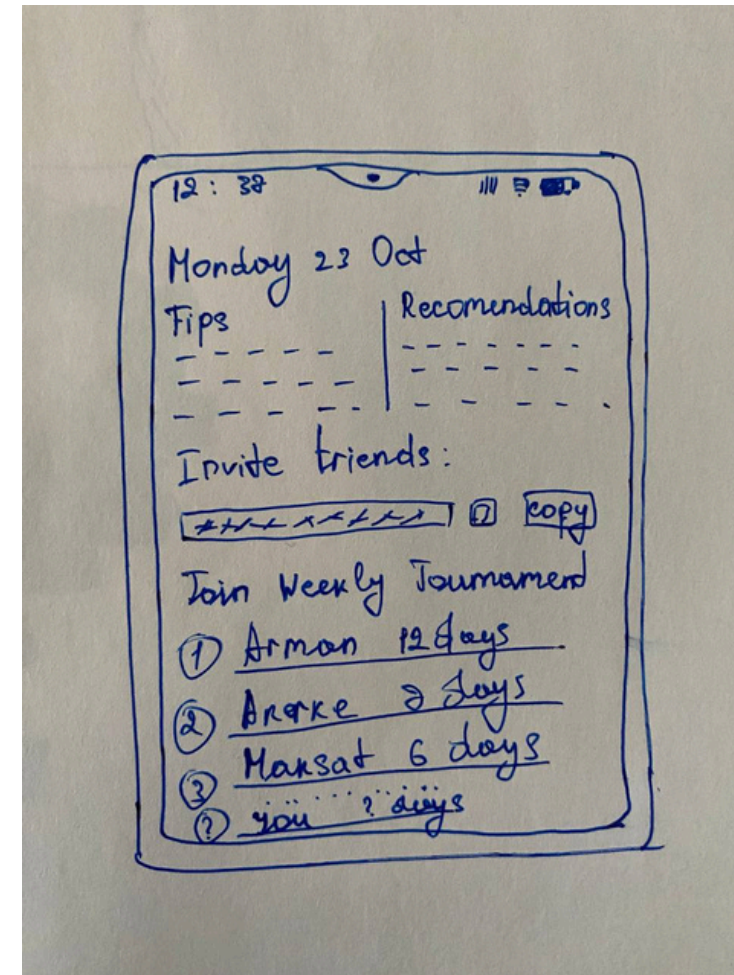 12 : 38
Monday 23 Oct
Tips
Recomendations
Invite friends:
copy
Join Weekly Tournament
1 Arman 12 days
2 days
3 Maksat 6 days
? you ? days